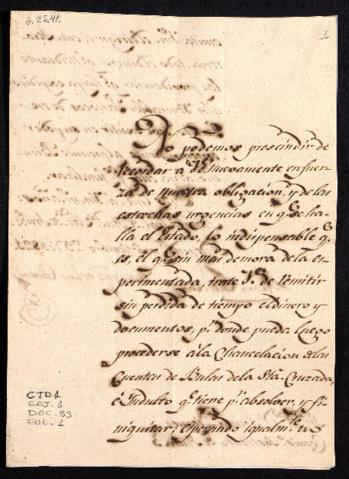 G. 2241.
1
No podemos prescindir de
recordar a Vd. nuevamente en fuer-
za de nuestra obligacion, y de las
estrechas urgencias en qe. se ha-
lla el Estado, lo indispensable qe.
es, el qe. sin mas demora de la ex-
perimentada, trate Vd. de remitir
sin perdida de tiempo el dinero y
documentos, pr. donde pueda luego
procederse à la Chancelacion de las
Cuentas de Bulas de la Sta. Cruzada,
è Indulto qe. tiene pr. absolver, y fi-
niquitar; esperando igualmte. no
GTD1
CAJ. 1
DOC. 53
FOL. 1